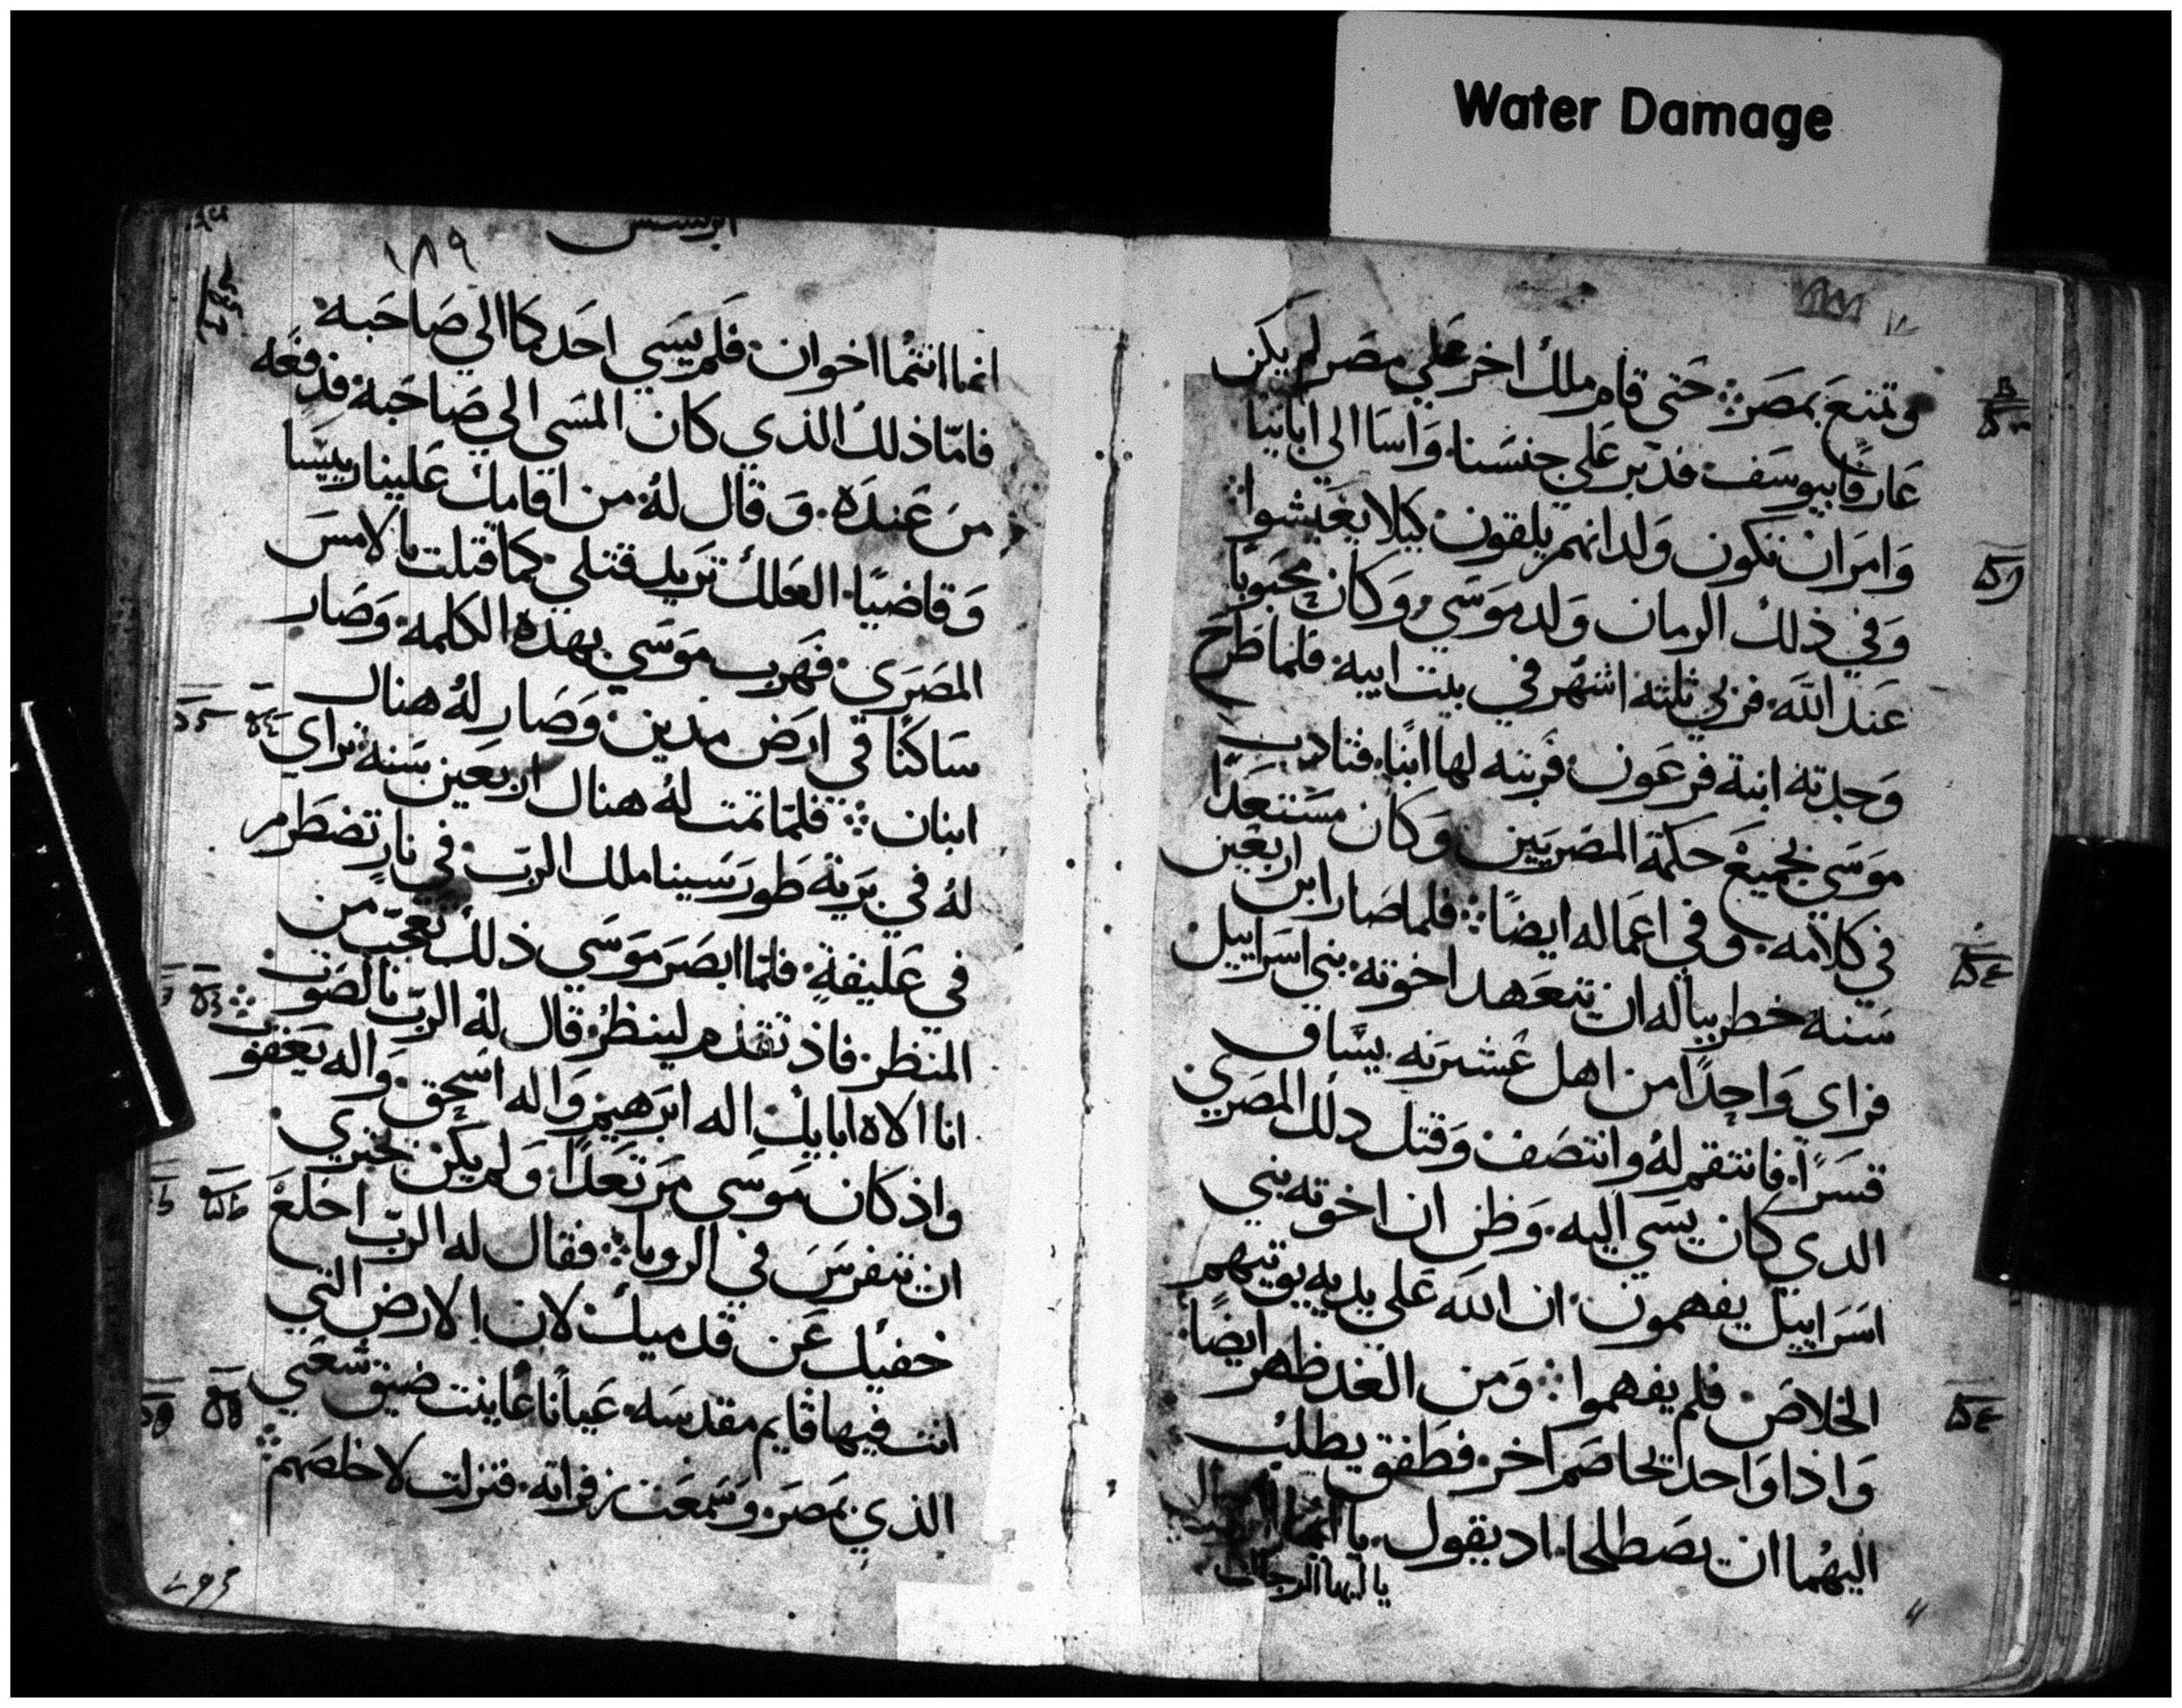 Water Damage
وتمتع بمصر ܀ حتى قام ملك اخر على مصر لم يكن
عارفًا بيوسف فدبر على جنسنا واسا الى ابائنا
وامر ان تكون ولدانهم يلقون كيلا يعيشوا ܀
وفي ذلك الزمان ولد موسي وكان محبوبًا
عند الله فربي ثلثه اشهر في بيت ابيه فلما طرح
وجدته ابنة فرعون فربته لها ابنًا فتادب
موسى بجميع حكمة المصريين وكان مستعدًا
في كلامه وفي اعماله ايضًا ܀ فلما صار ابن اربعين
سنه خطر بباله ان يتعهد اخوته بني اسراييل
فراى واحدًا من اهل عشيرته يساق
قسرًا فانتقم له وانتصف وقتل دلك المصري
الدي كان يسي اليه وظن ان اخوته بني
اسراييل يفهمون ان الله على يديه يوتيهم
الخلاص فلم يفهموا ܀ ومن الغد ظهر ايضًا
واذا واحدا يخاصم اخر فطفق يطلب
اليهما ان يصطلحا اد يقول يا ايها
يا ايها الرجال
١٨٩
انما انتما اخوان فلم يسي احدكما الي صاحبه
فامّا ذلك الذي كان المسي الي صاحبه فدفعه
من عنده وقال له من اقامك علينا رييسا
وقاضيًا العلك تريد قتلي كما قتلت بالامس
المصري فهرب موسي بهذه الكلمه وصار
ساكنًا في ارض مدين وصار له هناك
ابنان ܀ فلمّا تمت له هناك اربعين سنه تراي
له في برية طور سينا ملك الربّ في نارٍ تضطرم
في عليقةٍ فلمّا ابصر موسي ذلك تعجّب من
المنظر فاذ تقدم لينظر قال له الربّ بالصوت ܀
انا الاه ابايك اله ابرهيم واله اسحق واله يعقوب
واذ كان موسي مرتعدًا ولم يكن يجتري
ان يتفرس في الرويا ܀ فقال له الربّ اخلع
خفيك عن قدميك لان الارض التي
انت فيها قايم مقدسه عيانًا عاينت ضيق شعبي
الذي بمصر وسمعت زفراته فنزلت لاخلصهم ܀